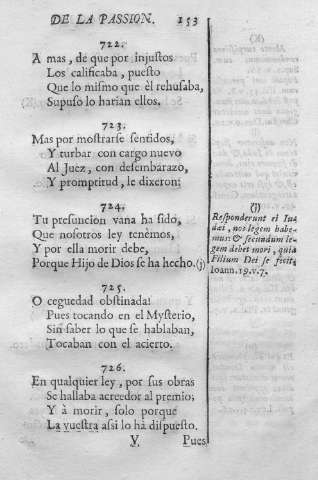 DE LA PASSION. 153
722.
A mas, de que por injustos
Los calificaba, puesto
Que lo mismo que èl rehusaba,
Supuso lo harian ellos.
723.
Mas por mostrarse sentidos,
Y turbar con cargo nuevo
Al Juez, con desembarazo,
Y promptitud, le dixeron:
724.
Tu presuncion vana ha sido,
Que nosotros ley tenèmos,
Y por ella morir debe,
Porque Hijo de Dios se ha hecho. (j)
725.
O ceguedad obstinada!
Pues tocando en el Mysterio,
Sin saber lo que se hablaban,
Tocaban con el acierto.
726.
En qualquier ley, por sus obras
Se hallaba acreedor al premio;
Y à morir, solo porque
La vuestra assi lo há dispuesto.
V. Pues
(j)
Responderunt ei Iu-
dæi, nos legem habe-
mus: & secundum le-
gem debet mori, quia
Filium Dei se fecit.
Ioann. 19. v. 7.